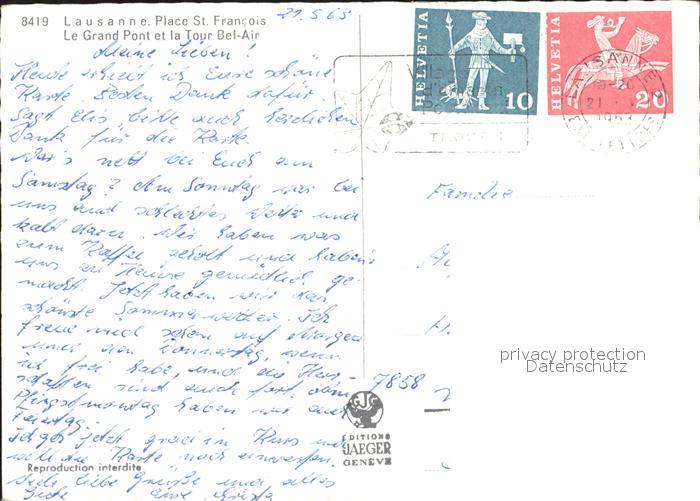 8419 Lausanne. Place St. François
Le Grand Pont et la Tour Bel-Air
21.5.63
Meine Lieben!
Heute erhielt ich Eure schöne
Karte. Besten Dank dafür.
Sagt Elis bitte auch herzlichen
Dank für die Karte.
War's nett bei Euch am
Samstag? Am Sonntag war bei
uns auch schlechtes Wetter und
kalt dazu. Wir haben was
zum Kaffee geholt und haben's
uns zu Hause gemütlich ge-
macht. Jetzt haben wir das
schönste Sommerwetter. Ich
freue mich schon auf Morgen
und den Donnerstag, wenn
ich frei habe und die Herr-
schaften sind auch fort. Am
Pfingstmontag haben wir auch
Feiertag.
Ich geh jetzt grad in Kurs und
will die Karte noch einwerfen.
Viele liebe Grüße und alles
Gute
HELVETIA
10
HELVETIA
20
LAUSANNE
Familie
7858
privacy protection
Datenschutz
EDITIONS
JAEGER
GENÈVE
Reproduction interdite